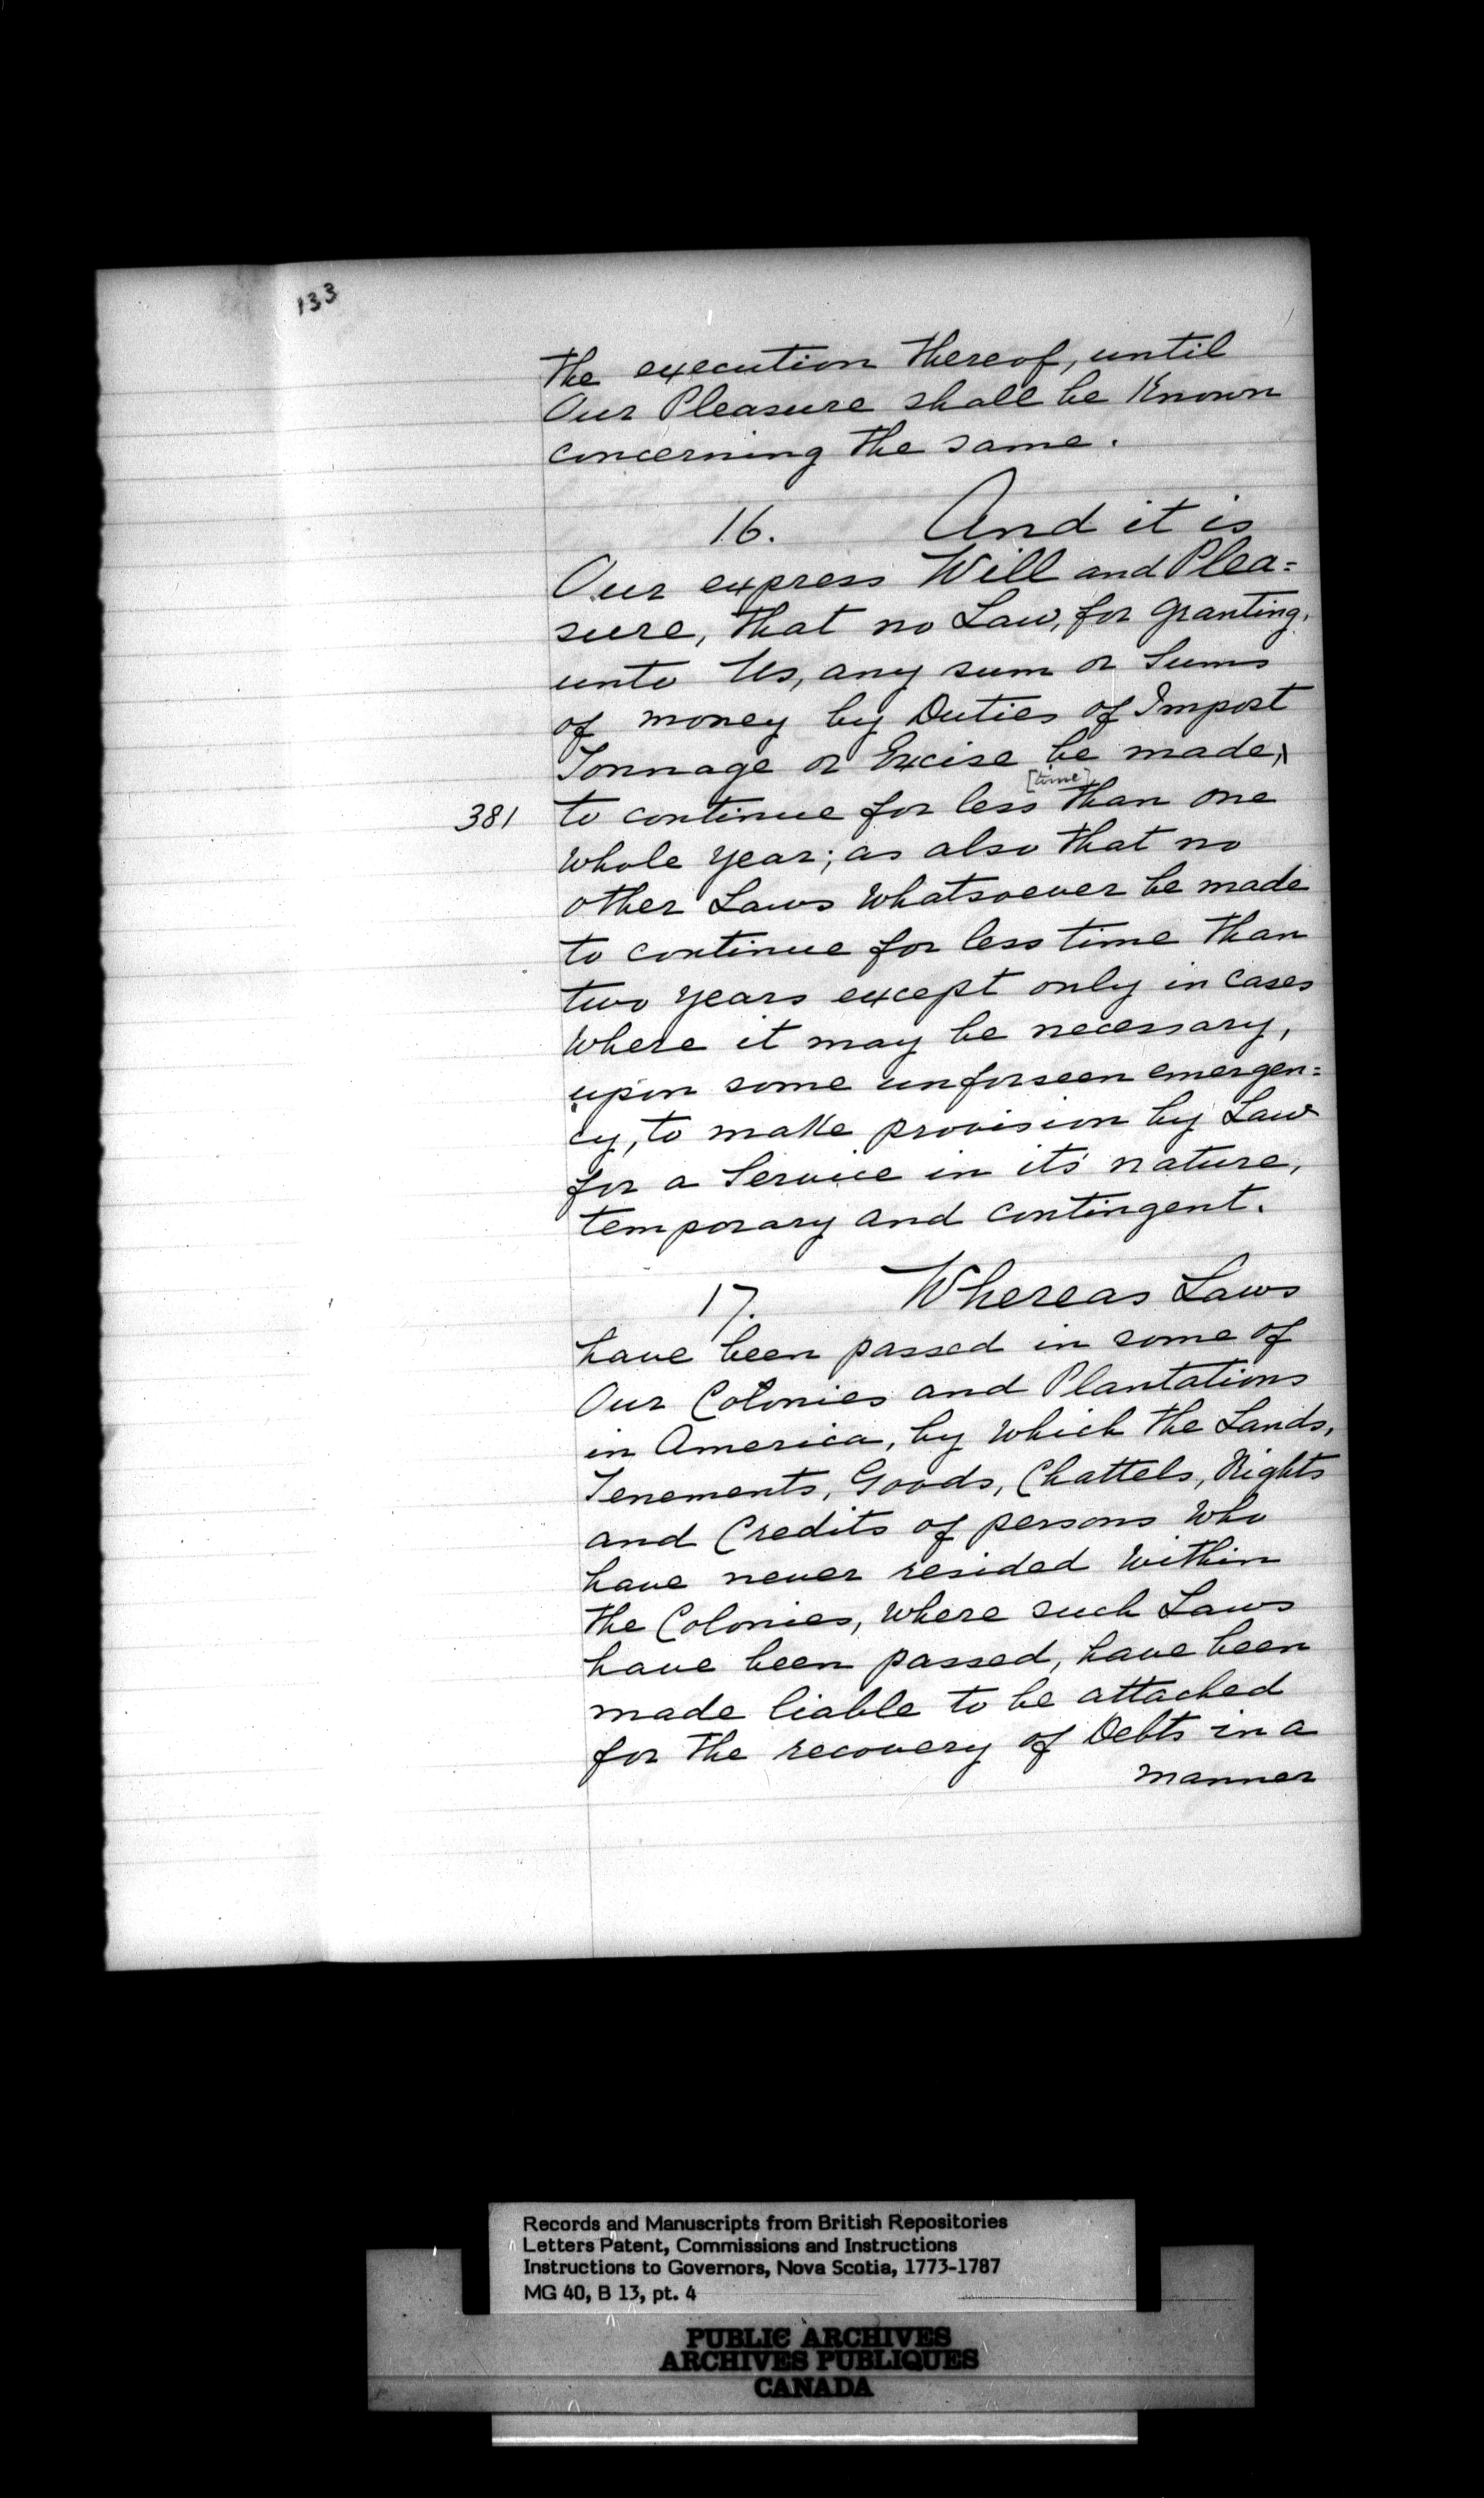 133
the execution thereof, until
Our Pleasure shall be Known
concerning the same.
16. And it is
Our express Will and Plea=
sure, that no Law, for granting,
unto Us, any sum or Sums
of money by Duties of Impost
Tonnage or Excise be made,
[time]
381 to continue for less than one
whole year; as also that no
other Laws whatsoever be made
to continue for less time than
two years except only in cases
where it may be necessary,
upon some unforseen emergen=
cy, to make provision by Law
for a Service in its nature,
temporary and contingent.
17. Whereas Laws
have been passed in some of
Our Colonies and Plantations
in America, by which the Lands,
Tenements, Goods, Chattels, Rights
and Credits of persons who
have never resided within
the Colonies, where such Laws
have been passed, have been
made liable to be attached
for the recovery of Debts in a
manner
Records and Manuscripts from British Repositories
Letters Patent, Commissions and Instructions
Instructions to Governors, Nova Scotia, 1773-1787
MG 40, B 13, pt. 4
PUBLIC ARCHIVES
ARCHIVES PUBLIQUES
CANADA